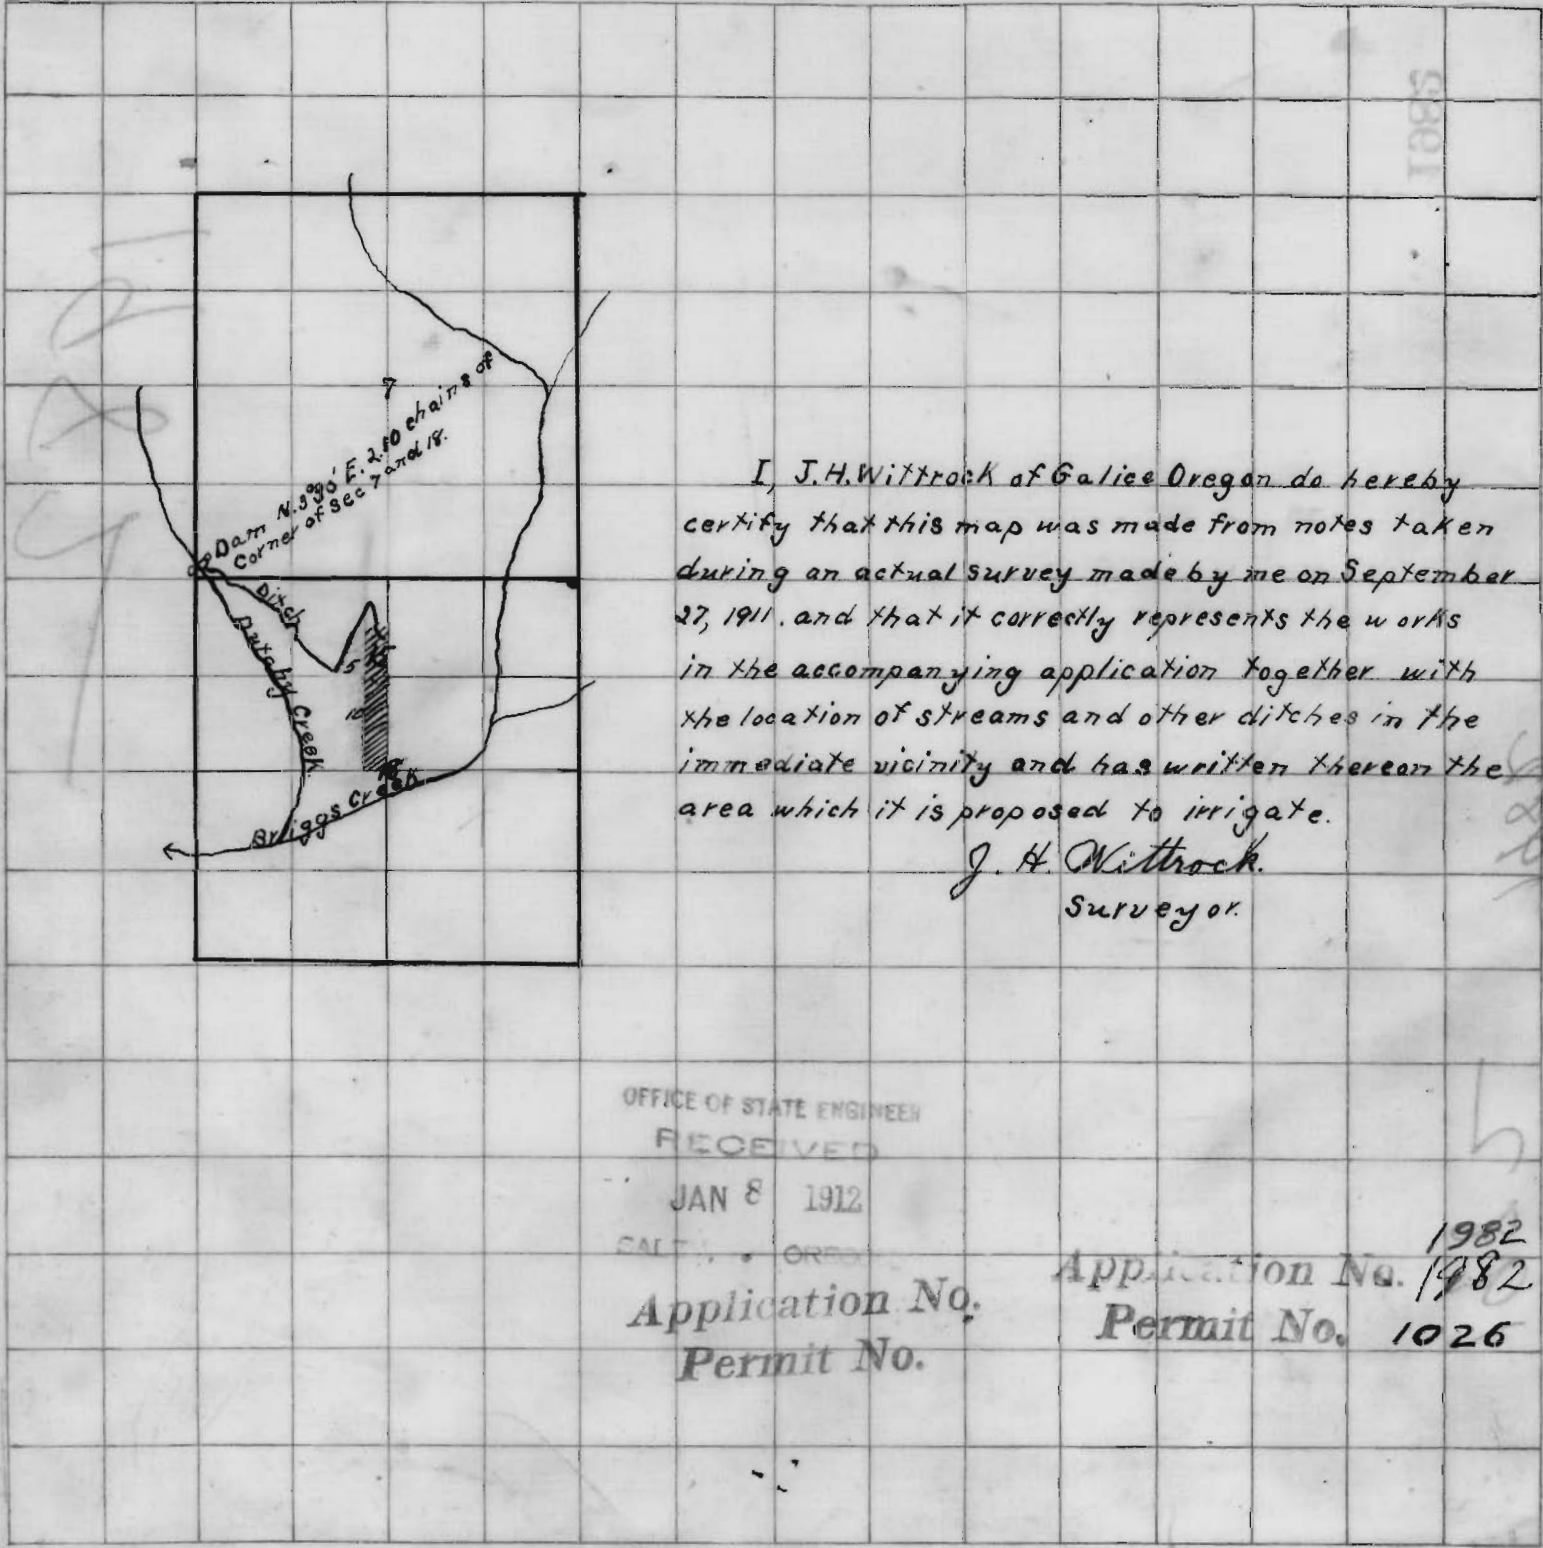 1982
7
Dam N.3°90' E. 2.80 chains of
Corner of Sec 7 and 18.
Ditch
Dutchy Creek
5
10
18
Briggs Creek
I, J.H. Wittrock of Galice Oregon do hereby
certify that this map was made from notes taken
during an actual survey made by me on September
27, 1911. and that it correctly represents the works
in the accompanying application together with
the location of streams and other ditches in the
immediate vicinity and has written thereon the
area which it is proposed to irrigate.
J. H. Wittrock.
Surveyor.
OFFICE OF STATE ENGINEER
RECEIVED
JAN 8 1912
Application No.
Permit No.
1982
Application No. 1982
Permit No. 1026